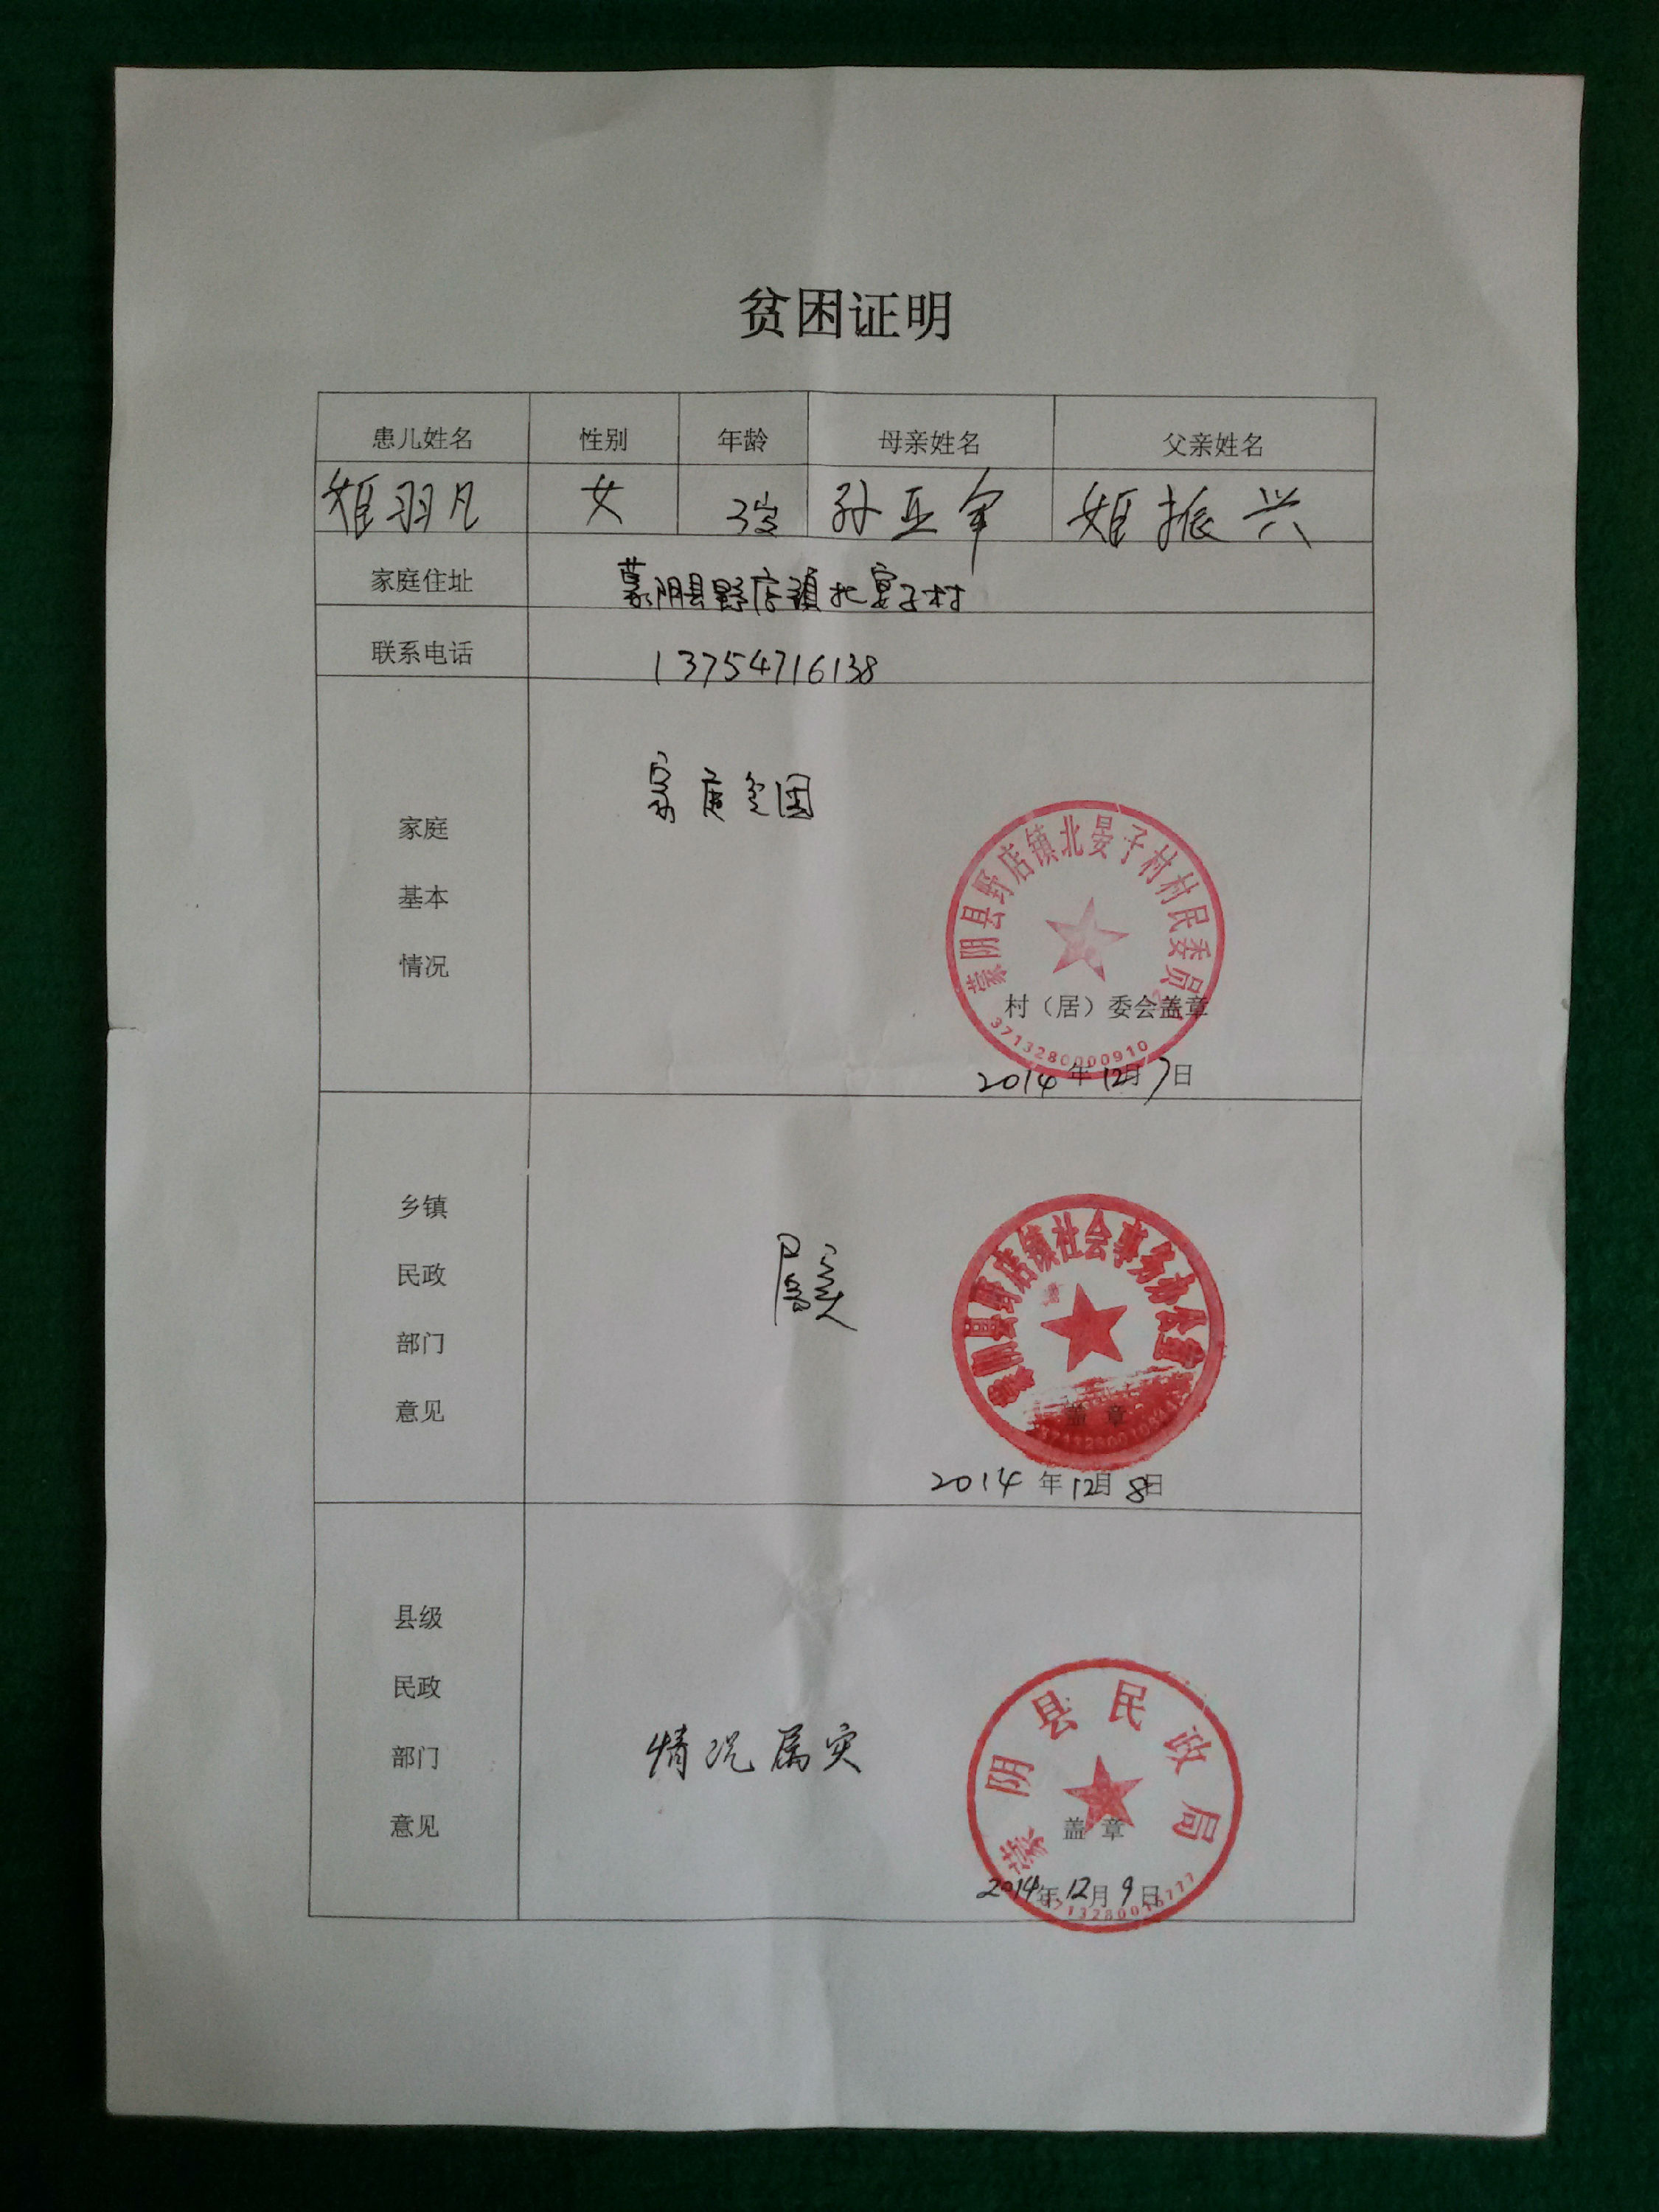 贫困证明
患儿姓名 性别 年龄 母亲姓名 父亲姓名
姬羽凡 女 3岁 孙亚军 姬振兴
家庭住址 蒙阴县野店镇北宴子村
联系电话 13754716138
家庭
基本
情况
家庭贫困
蒙阴县野店镇北晏子村村民委员
村（居）委会盖章
3713280000910
2014年12月7日
乡镇
民政
部门
意见
属实
蒙阴县野店镇社会事务办公室
盖章
2014年12月8日
县级
民政
部门
意见
情况属实
蒙阴县民政局
盖章
2014年12月9日